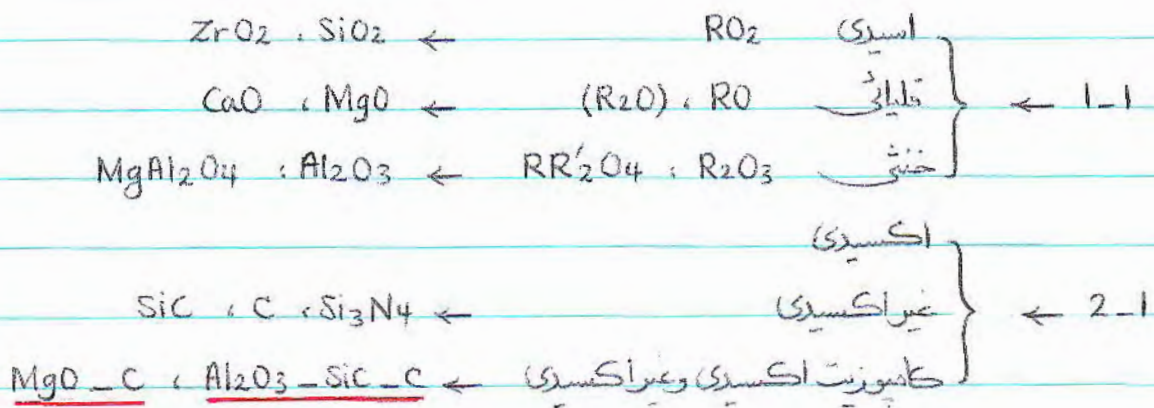 اسیدی RO2 ← ZrO2 ، SiO2
1-1 ← قلیائی (R2O) ، RO ← CaO ، MgO
خنثی RR′2O4 ، R2O3 ← MgAl2O4 ، Al2O3
اکسیدی
1-2 ← غیر اکسیدی ← SiC ، C ، Si3N4
کامپوزیت اکسیدی و غیر اکسیدی ← MgO_C ، Al2O3_SiC_C